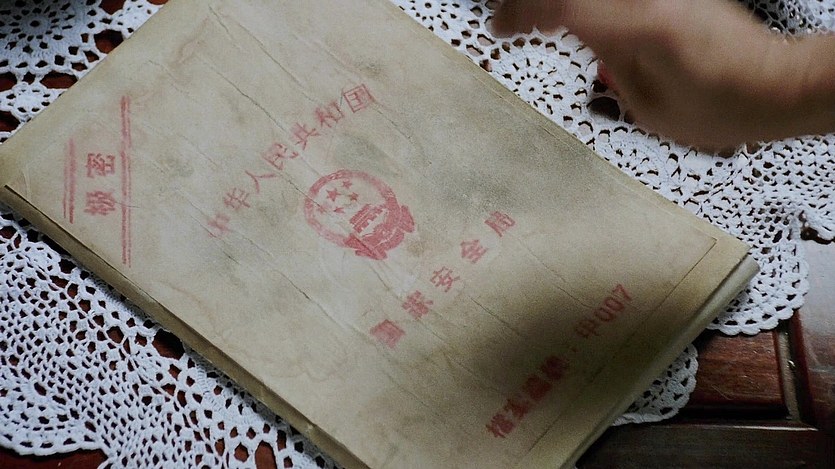 极密
中华人民共和国
国家安全局
档案编号·中007